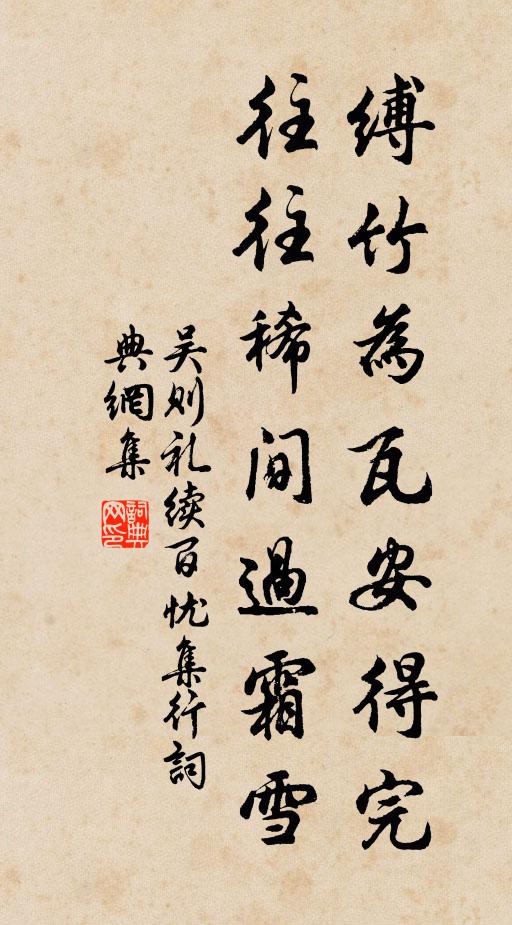 缚竹為瓦安得完
往往稀间過霜雪
吴则礼续百忧集行詞
典網集
詞典网印